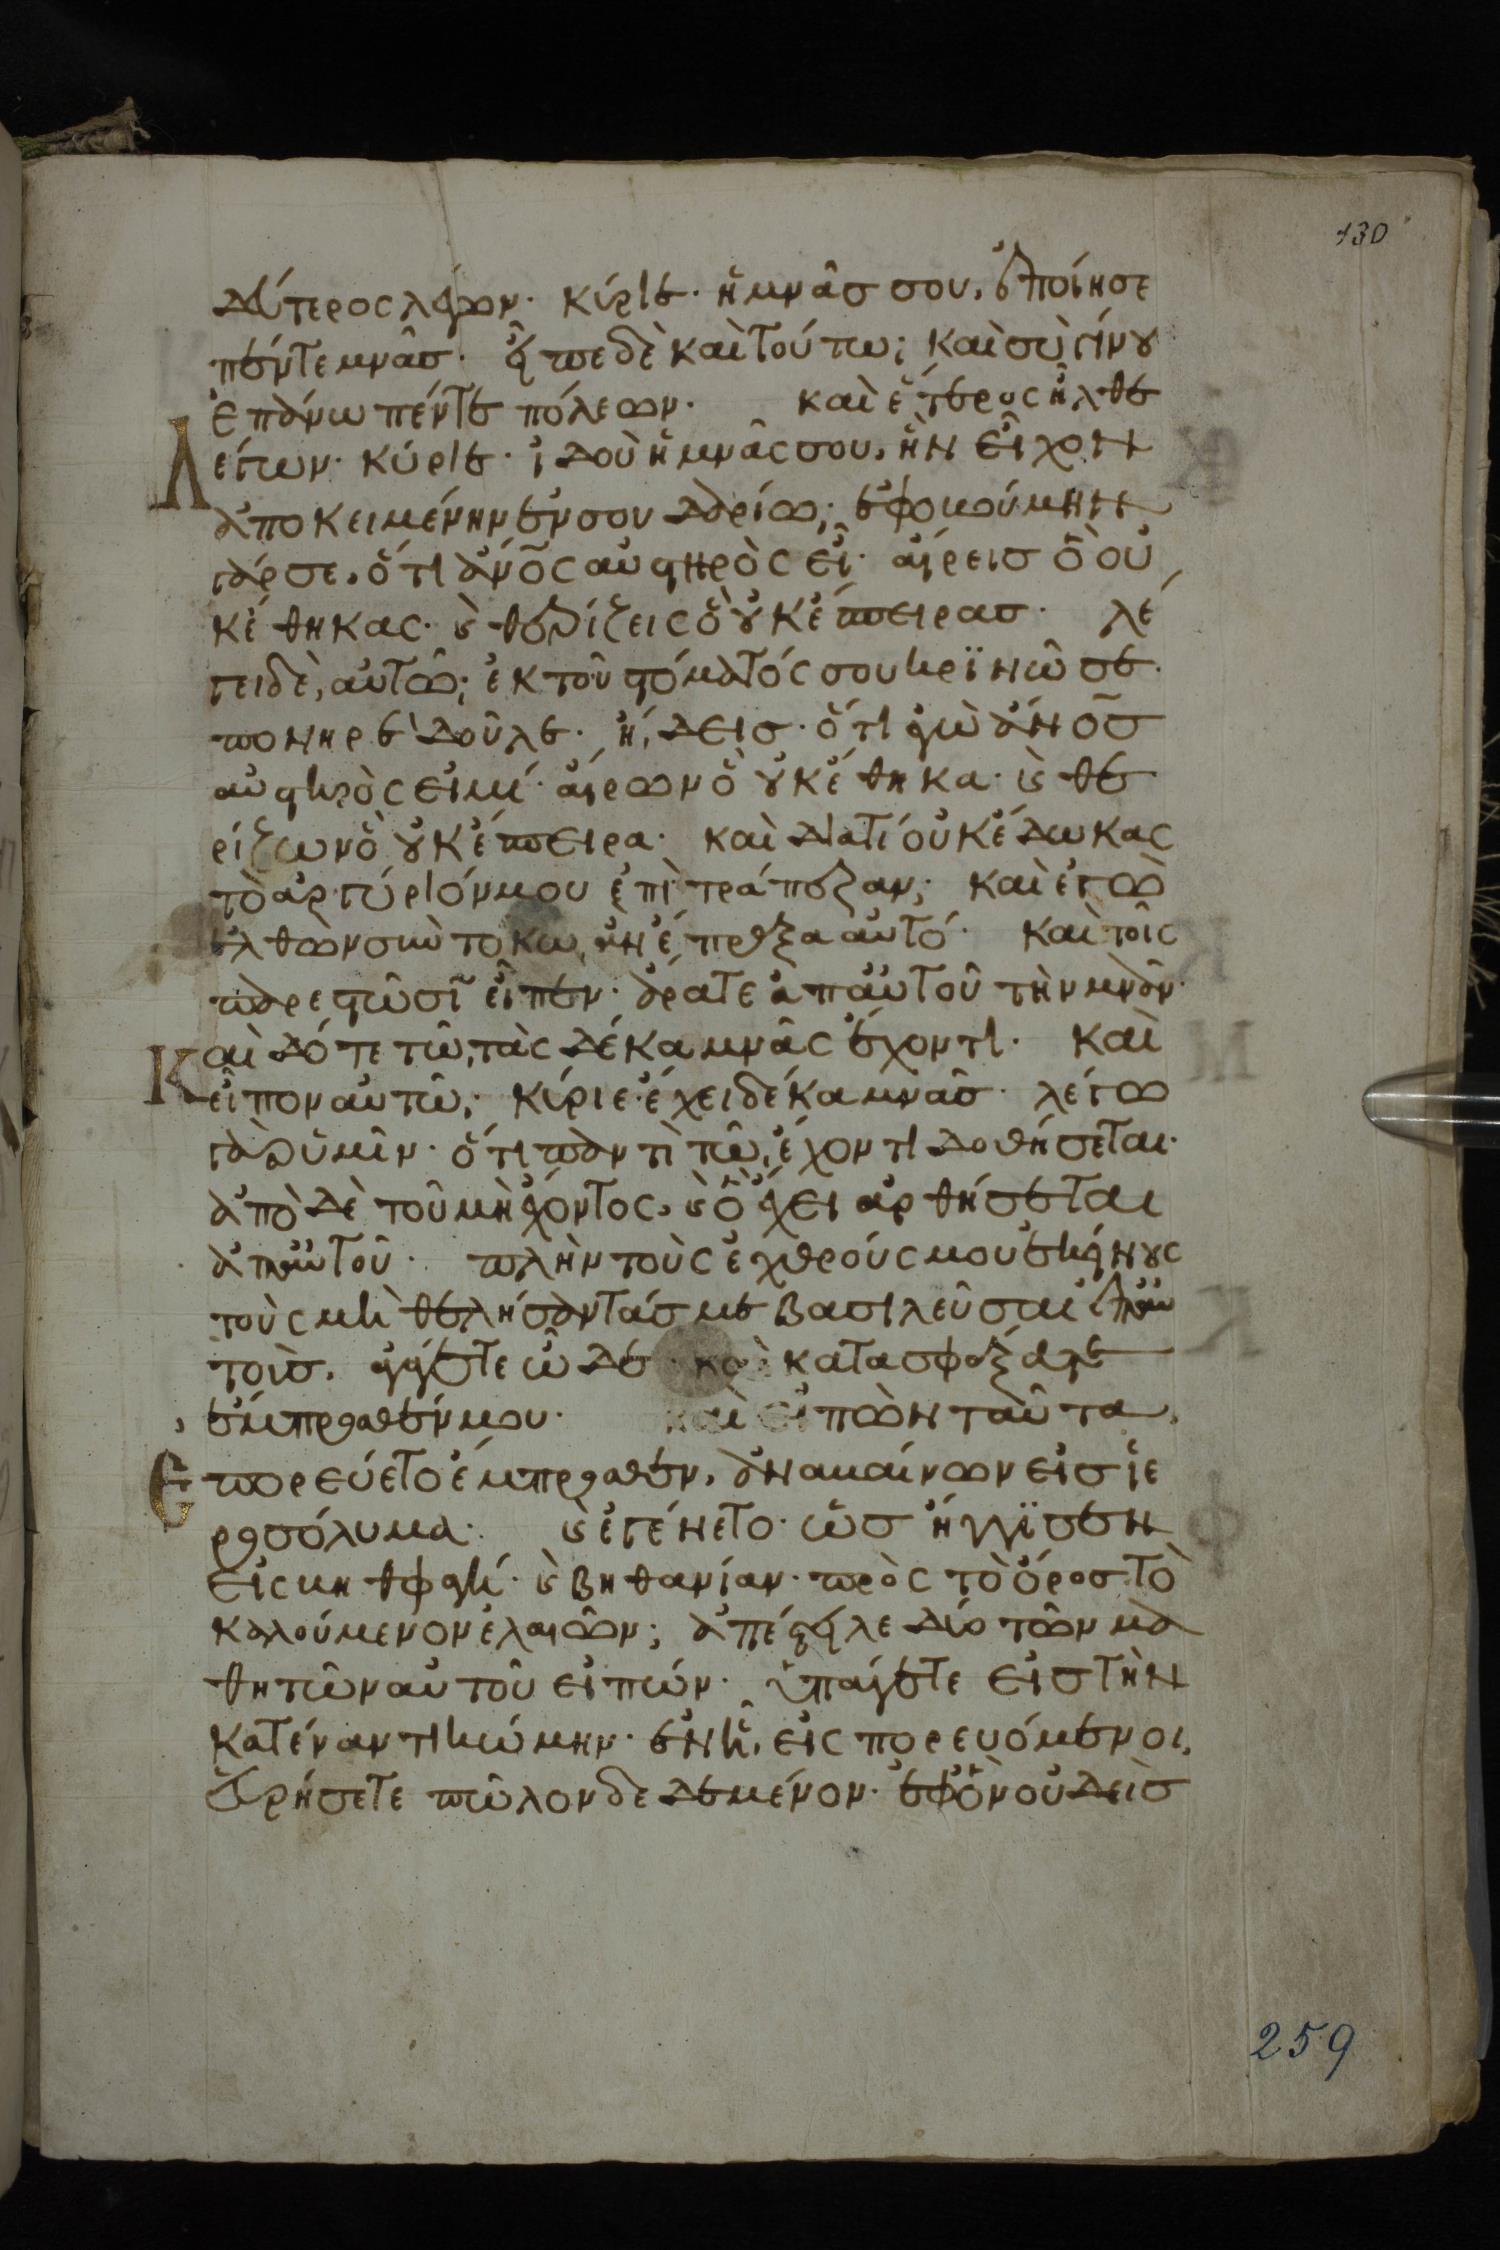 130
δεύτερος λέγων· κύριε· ἡ μνᾶσ σου, ἐποίησε
πέντε μνᾶσ· εἶπε δὲ καὶ τούτω; καὶ σὺ γίνου
ἐπάνω πέντε πόλεων· καὶ ἕτερος ἦλθε
Λέγων· κύριε· ἰδοὺ ἡ μνᾶς σου, ἣν εἶχον
ἀποκειμένην ἐν σουδαρίω; ἐφοβούμην
γάρ σε, ὅτι ἀνο̅ς αὐστηρὸς εἶ· αἴρεισ ὃ οὐ
κέθηκας· κ θερίζεις ὃ οὐκ έσπειρασ· λέ
γει δὲ, αὐτῶ; ἐκ τοῦ στόματός σου κρϊνῶ σε·
πονηρὲ δοῦλε· ἤδεισ· ὅτι ἐγὼ ἀνο̅σ
αὐστηρὸς εἰμί· αἴρων ὃ οὐκ έθηκα· κ θε
ρίζων ὃ οὐκ έσπειρα· καὶ διατί οὐκ έδωκας
τὸ ἀργύριόν μου ἐπὶ τράπεζαν; καὶ ἐγὼ
ἐλθὼν σὺν τόκω, ἂν έπραξα αὐτό· καὶ τοῖς
παρεστῶσϊ εἶπεν· ἄρατε ἀπ αὐτοῦ τὴν μνᾶν·
Καὶ δότε τῶ, τὰς δέκα μνᾶς ἔχοντι· καὶ
εἶπον αὐτῶ; κύριε· έχει δέκα μνᾶσ· λέγω
γὰρ ὑμῖν· ὅτι παντὶ τῶ, έχοντι δοθήσεται·
ἀπὸ δὲ τοῦ μὴ ἔχοντος, κ ὃ ἔχει ἀρθήσεται
ἀπ αὐτοῦ· πλὴν τοὺς ἐχθρούς μου ἐκείνους
τοὺς μὴ θελήσαντάσ με βασιλεῦσαι ἐπ αὐ
τοὺσ, ἀγάγετε ὧδε· καὶ κατασφάξατε
έμπροσθέν μου· καὶ εἰπὼν ταῦτα,
Ἐπορεύετο έμπροσθεν, ἀναβαίνων εἰσ ἱε
ροσόλυμα· κ ἐγένετο· ὡσ ἤγγϊσεν
εἰς βηθφαγή· κ βηθανίαν· πρὸς τὸ ὄροσ τὸ
καλούμενον ἐλαιῶν; ἀπέστειλε δύο τῶν μα
θητῶν αὐτοῦ εἰπών· ὑπάγετε εἰσ τὴν
κατέναντι κώμην· ἐν ἧ, εἰς πορευόμενοι,
εὑρήσετε πῶλον δεδεμένον· ἐφ ὃν οὐδεὶσ
259